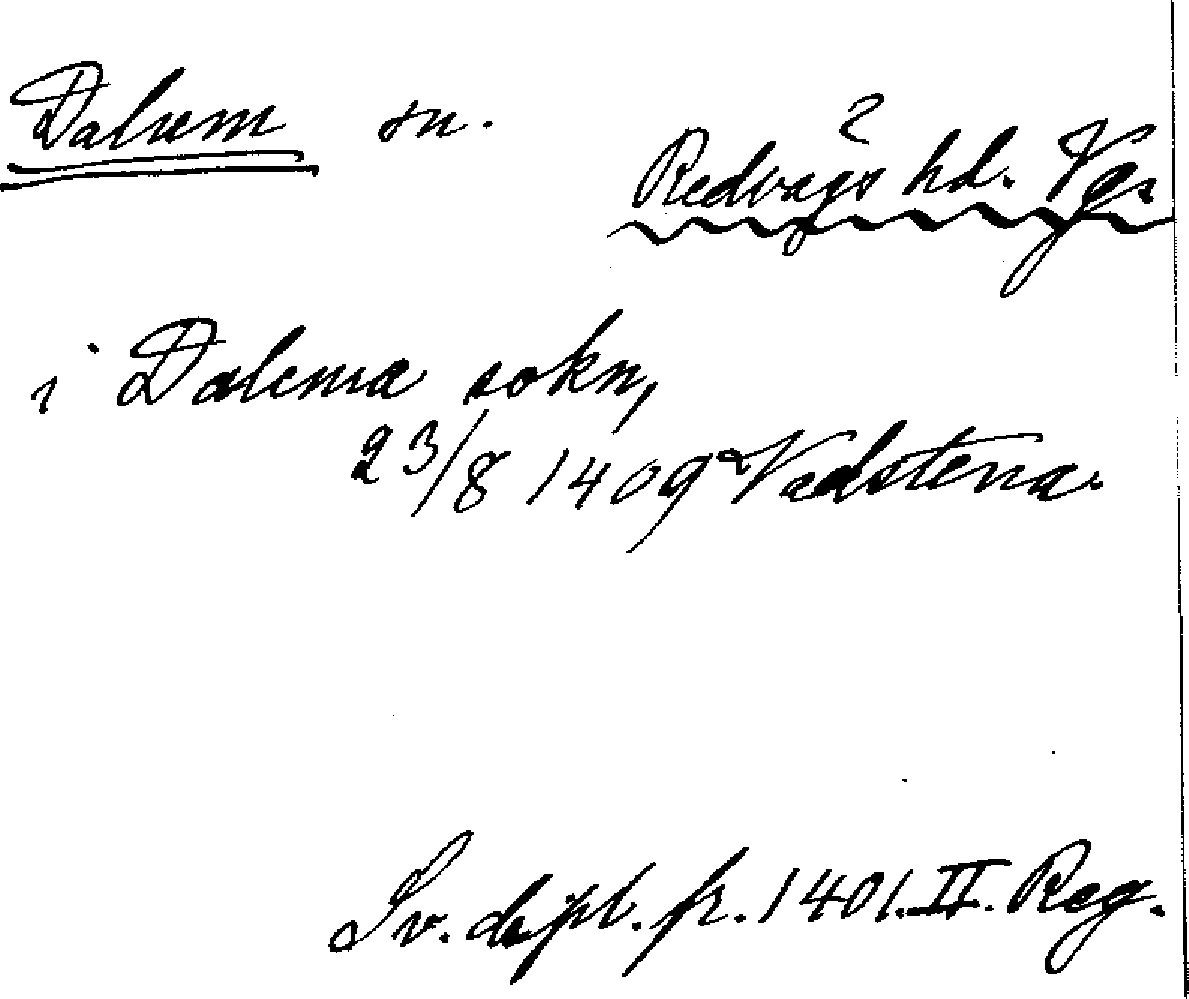 Dalum sn.
?
Redvägs hd. Vg.
i Dalema sokn,
23/8 1409 Vadstena.
Sv. dipl. fr. 1401. II. Reg.